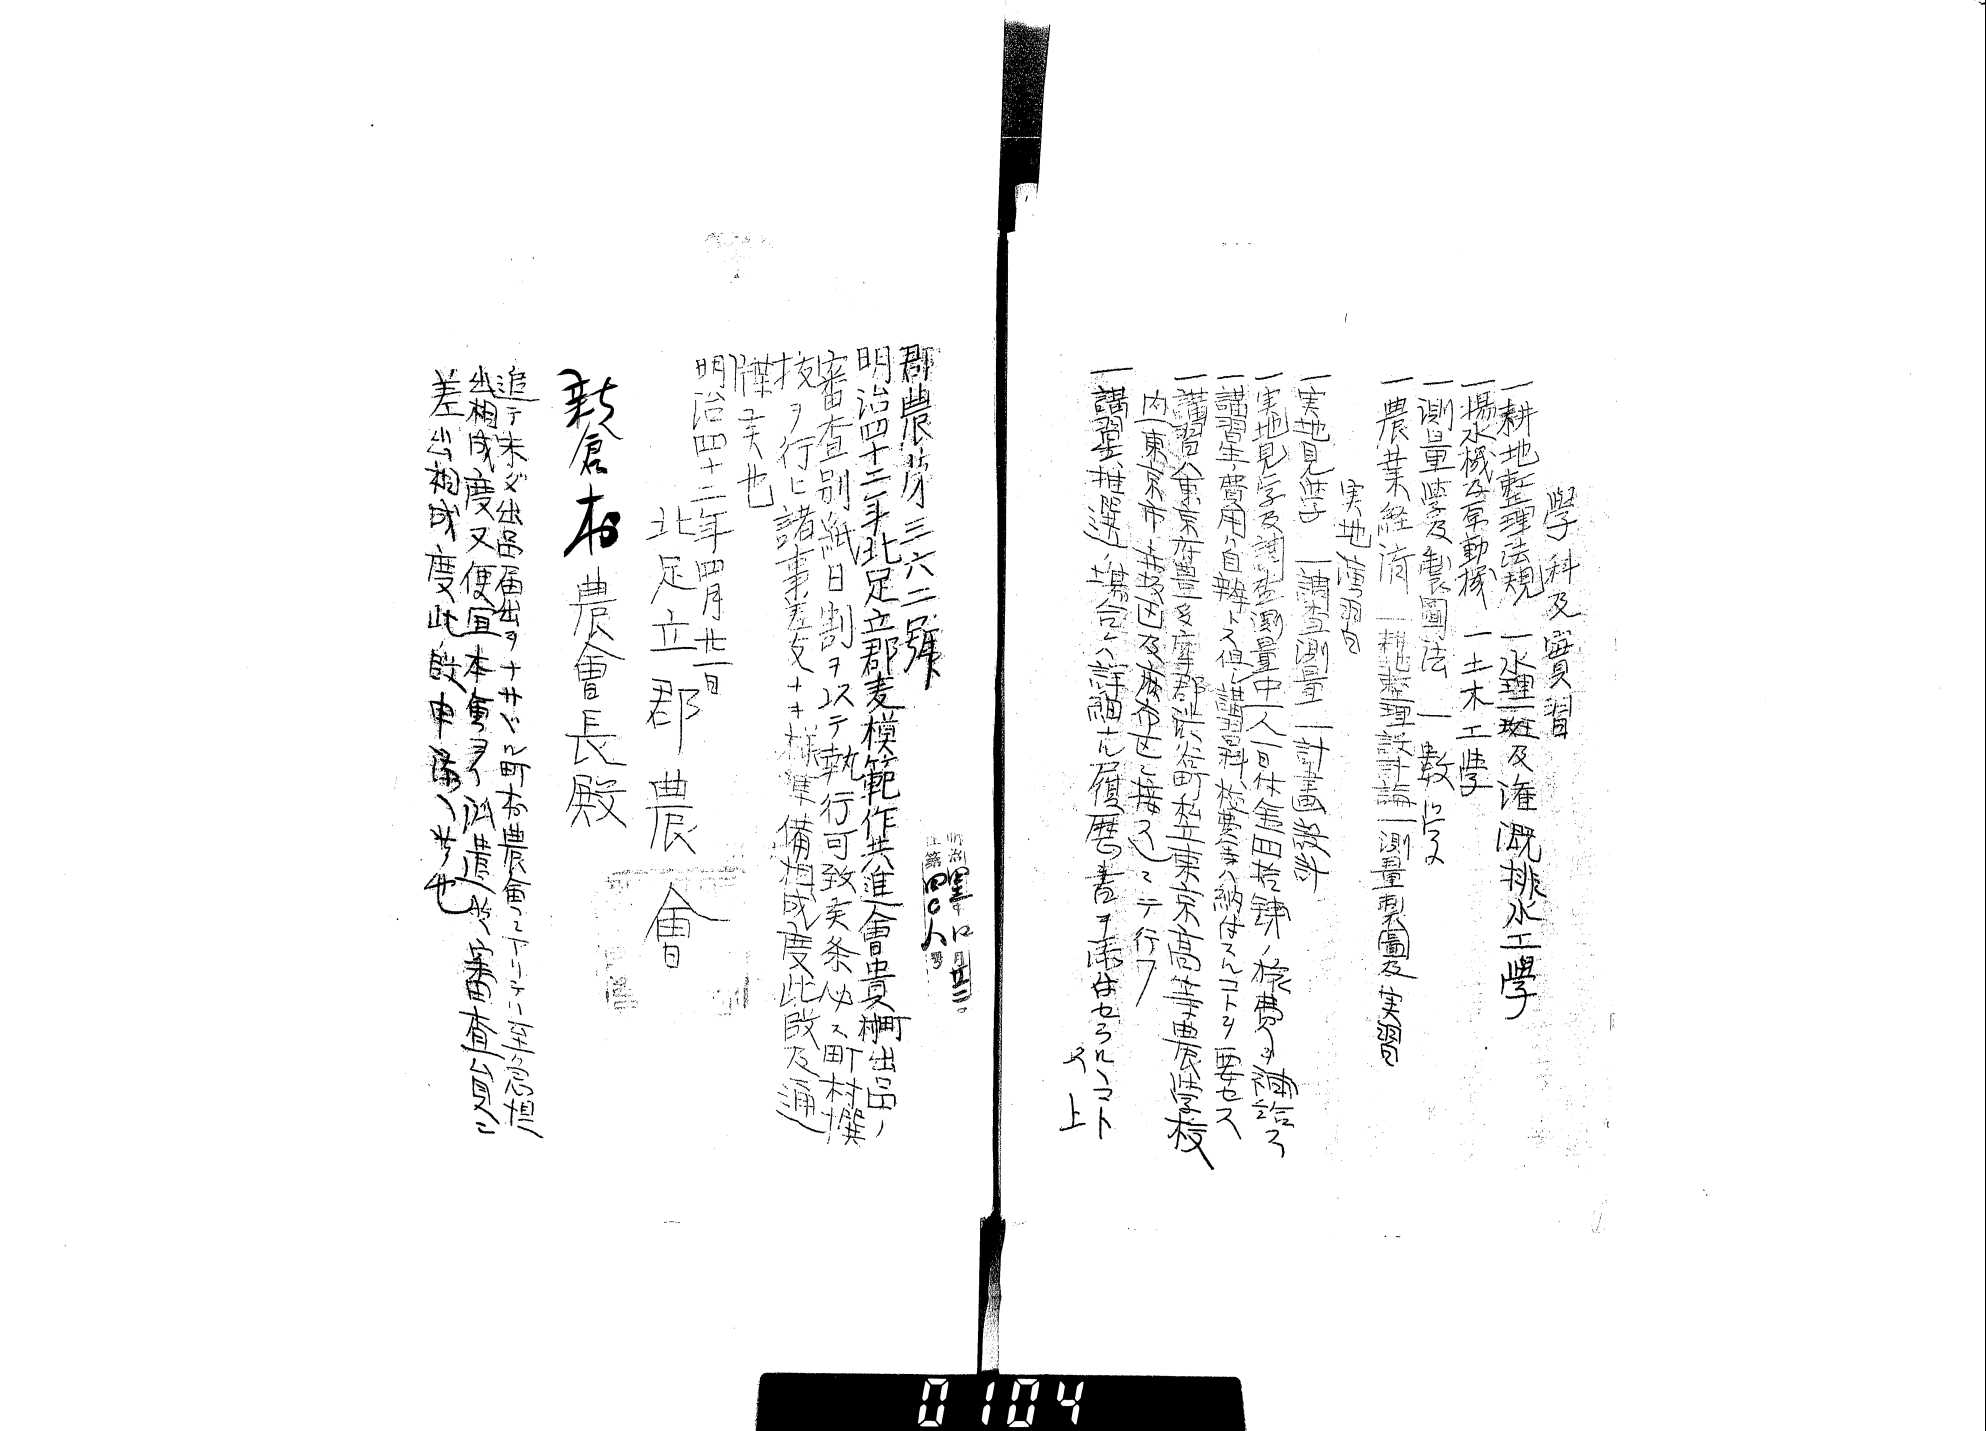 學科及實習
一耕地整理法規　一水理斑及灌漑排水工學
一揚水機及原動機　一土木工學
一測量學及製圖法　一數學
一農業経済　一耕地整理設計論　一測量製圖及実習
実地演習
一実地見学　一調査測量　一計畫設計
一実地見学及調査測量中一人一日金四拾錢ノ旅費ヲ補給ス
一講習生ノ費用ハ自辨トス但シ講習料、校費等ハ納付スルコトヲ要セス
一講習ハ東京府豊多摩郡渋谷町私立東京高等農学校
内東京市赤坂区及麻布区ニ接近ニテ行フ
一講習生推選ノ場合ハ詳細ナル履歴書ヲ添付セラルヽコト
以上
郡農第三六二號
明治四十二年北足立郡麦模範作共進會貴町村出品ノ
審査別紙日割ヲ以テ執行可致候条必ス町村撰
抜ヲ行ヒ諸事差支ナキ様準備相成度此段及通
牒候也
明治四十二年四月廿一日
北足立郡農會
新倉村農會長殿
追テ未ダ出品届出ヲナサヾル町村農會ニアリテハ至急提
出相成度又便宜本會ヨリ派遣ノ審査員ニ
差出相成度此段申添候也
0104